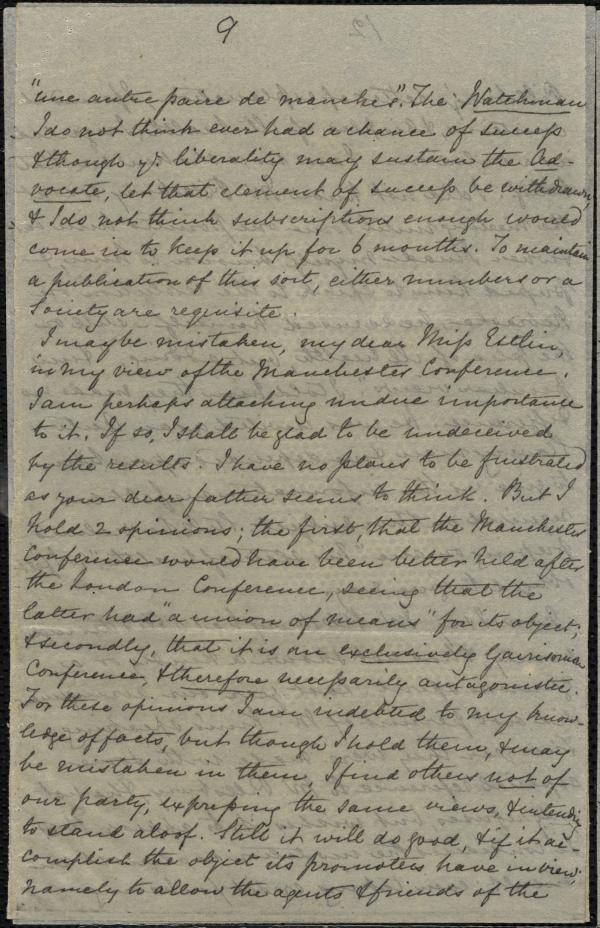 9
"une autre paire de manches". The Watchman
I do not think ever had a chance of success
& though yr. liberality may sustain the Ad-
vocate, let that element of success be withdrawn,
& I do not think subscriptions enough would
come in to keep it up for 6 months. To maintain
a publication of this sort, either numbers or a
Society are requisite.
I may be mistaken, my dear Miss Estlin,
in my view of the Manchester Conference.
I am perhaps attaching undue importance
to it. If so, I shall be glad to be undeceived
by the results. I have no plans to be frustrated
as your dear father seems to think. But I
hold 2 opinions; the first, that the Manchester
Conference would have been better held after
the London Conference, seeing that the
latter had "a union of means" for its object;
& secondly, that it is an exclusively Garrisonian
Conference, & therefore necessarily antagonistic.
For these opinions I am indebted to my know-
ledge of facts, but though I hold them, & may
be mistaken in them, I find others not of
our party, expressing the same views, & intending
to stand aloof. Still it will do good, & if it ac-
complish the object its promoters have in view,
namely to allow the agents & friends of the